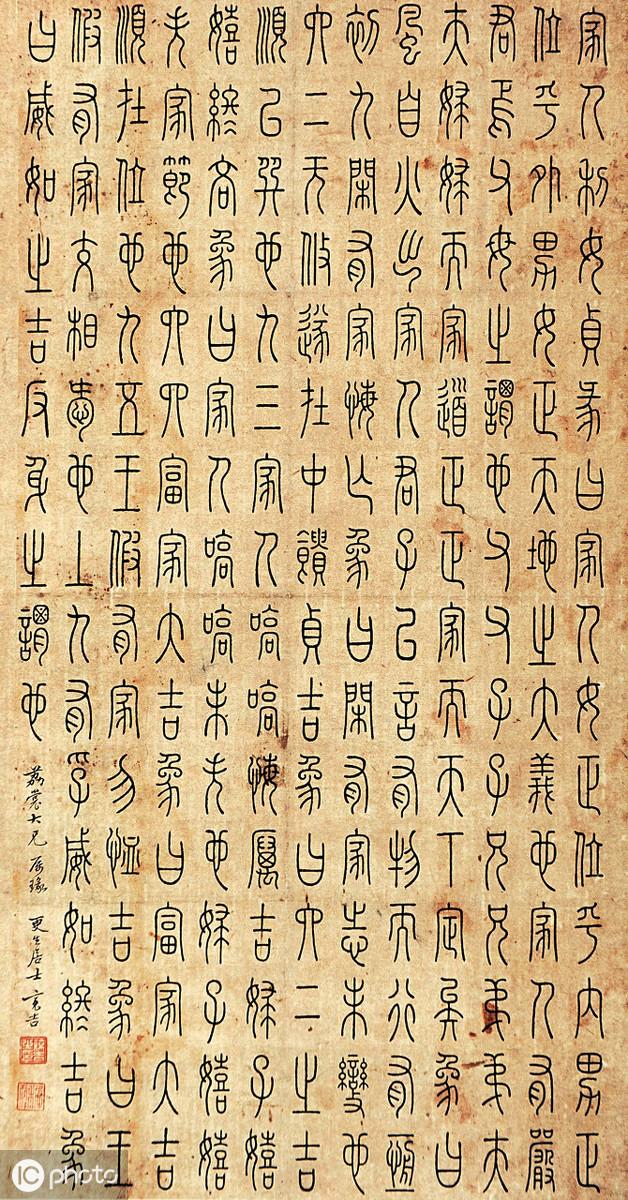 家人利女貞彖曰家人女正位乎内男正
位乎外男女正天地之大義也家人有嚴
君焉父母之謂也父父子子兄兄弟弟夫
夫婦婦而家道正正家而天下定矣象曰
風自火出家人君子以言有物而行有恆
初九閑有家悔亡象曰閑有家志未變也
六二无攸遂在中饋貞吉象曰六二之吉
順以巽也九三家人嗃嗃悔厲吉婦子嬉
嬉終吝象曰家人嗃嗃未失也婦子嬉嬉
失家節也六四富家大吉象曰富家大吉
順在位也九五王假有家勿恤吉象曰王
假有家交相愛也上九有孚威如終吉象
曰威如之吉反身之謂也
荔裳大兄 更生居士亮吉
IC photo